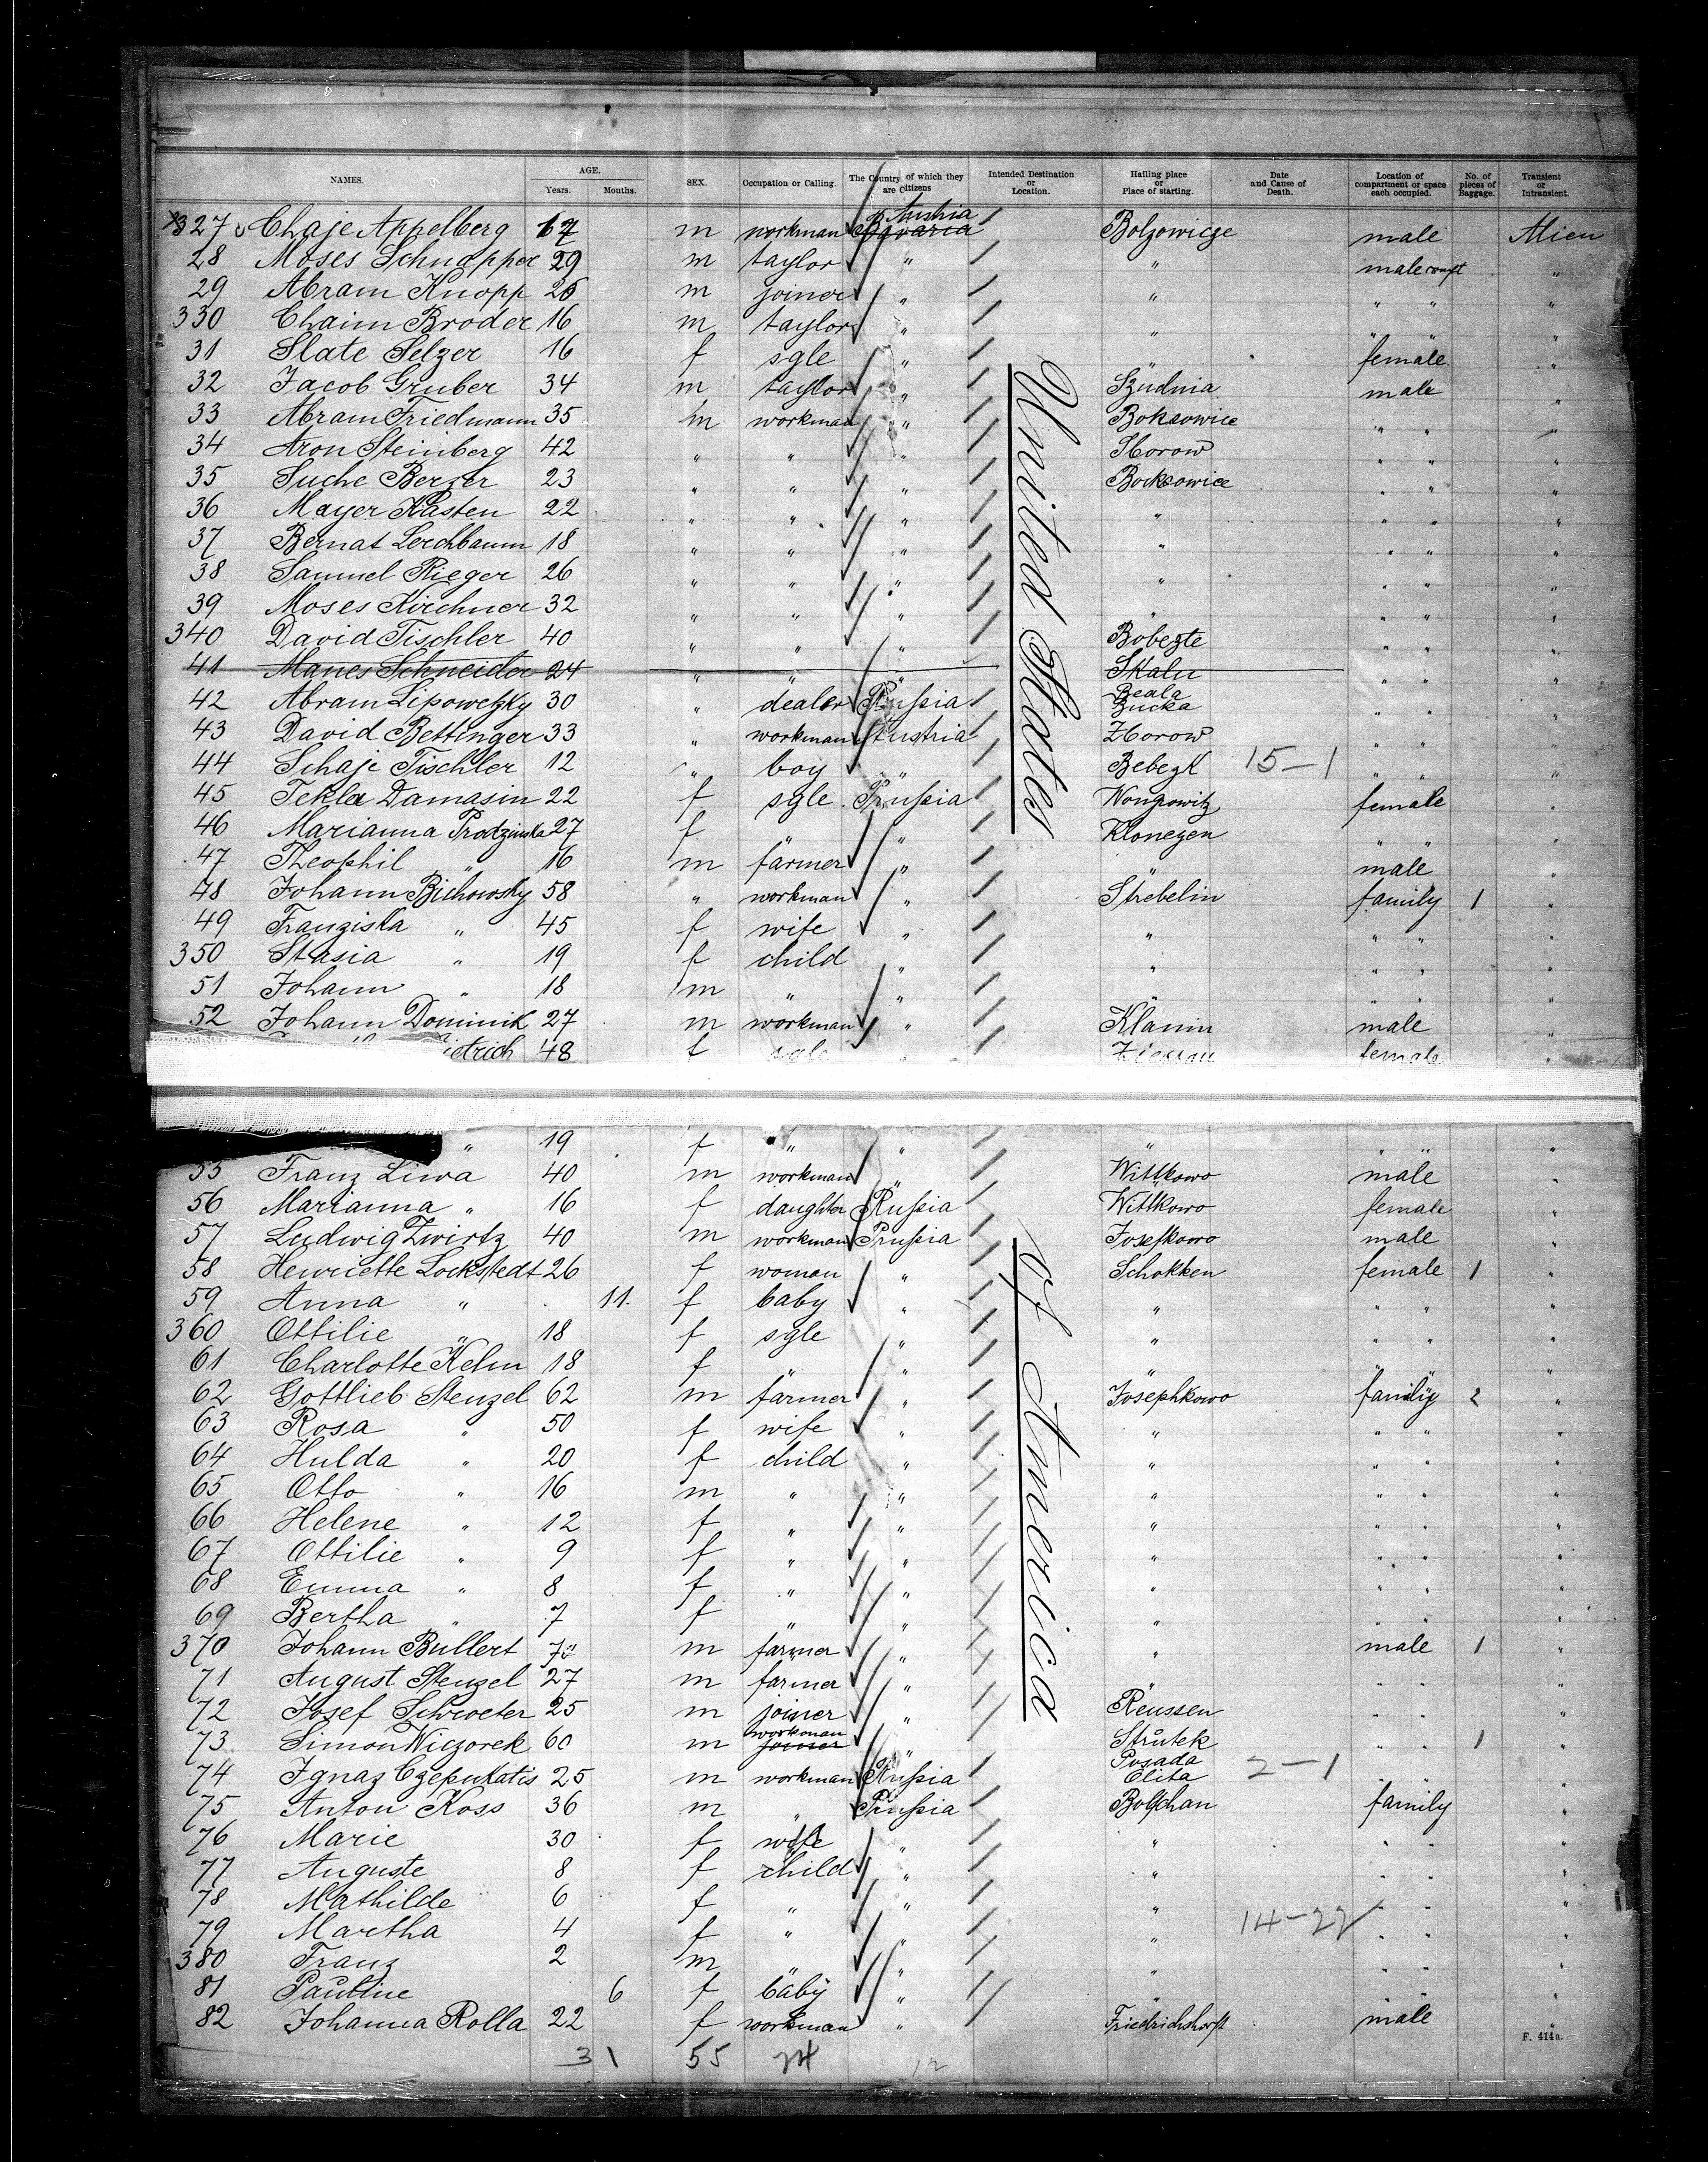 NAMES. AGE. Years. Months. SEX. Occupation or Calling. The Country of which they are Citizens Intended Destination or Location. Hailing place or Place of starting. Date and Cause of Death. Location of compartment or space each occupied. No. of pieces of Baggage. Transient or Intransient.
327 Chaje Appelberg 17 m workman Bavaria Austria Bolzowicze male Alien
28 Moses Schnapper 29 m taylor " " male compt "
29 Abram Knopp 26 m joiner " " " " "
330 Chaim Broder 16 m taylor " " " " "
31 Slate Selzer 16 f sgle " " female "
32 Jacob Gruber 34 m taylor " Szudnia male "
33 Abram Friedmann 35 m workman " Boksowice " " "
34 Aron Steinberg 42 " " " Horow " " "
35 Suche Berger 23 " " " Bocksowice " " "
36 Mayer Kasten 22 " " " " " " "
37 Bernat Lerchbaum 18 " " " " " " "
38 Samuel Rieger 26 " " " " " " "
39 Moses Kirchner 32 " " " " " " "
340 David Tischler 40 " " " Bobezte " " "
41 Manes Schneider 24 " " " Skalu " " "
42 Abram Lipowetzky 30 " dealer Russia Beala Zucka " " "
43 David Bettinger 33 " workman Austria Zborow " " "
44 Schaje Tischler 12 " boy " Bebezk 15-1 " " "
45 Tekla Damasin 22 f sgle Prussia Wongrowitz female "
46 Marianna Prodzinska 27 f " " Klonezen " " "
47 Theophil " 16 m farmer " " male "
48 Johann Bichowsky 58 " workman " Strebelin family 1 "
49 Franziska " 45 f wife " " " " "
350 Stasia " 19 f child " " " " "
51 Johann " 18 m " " " " " "
52 Johann Dominik 27 m workman " Klanin male "
ietrich 48 f sgle " female "
United States
" 19 f " " " " " "
55 Franz Liwa 40 m workman " Wittkowo male "
56 Marianna " 16 f daughter Russia Wittkowo female "
57 Ludwig Zwirtz 40 m workman Prussia Josefkowo male "
58 Henriette Lockstedt 26 f woman " Schokken female 1 "
59 Anna " 11. f baby " " " " "
360 Ottilie " 18 f sgle " " " " "
61 Charlotte Kelm 18 f " " " " " "
62 Gottlieb Stenzel 62 m farmer " Josephkowo family 2 "
63 Rosa " 50 f wife " " " " "
64 Hulda " 20 f child " " " " "
65 Otto " 16 m " " " " " "
66 Helene " 12 f " " " " " "
67 Ottilie " 9 f " " " " " "
68 Emma " 8 f " " " " " "
69 Bertha " 7 f " " " " " "
370 Johann Bullert 70 m farmer " " male 1 "
71 August Stenzel 27 m farmer " " " " "
72 Josef Schroeter 25 m joiner " Reussen " " "
73 Simon Wiczorek 60 m workman joiner " Strutek " " 1 "
74 Ignaz Czepukatis 25 m workman Russia Posada Olita 2-1 " " "
75 Anton Koss 36 m " Prussia Bolschan family "
76 Marie 30 f wife " " " " "
77 Auguste 8 f child " " " " "
78 Mathilde 6 f " " " " " "
79 Martha 4 f " " " 14-22 " " "
380 Franz 2 m " " " " " "
81 Pauline 6 f baby " " " " "
82 Johanna Rolla 22 f workman " Friedrichshorst male "
of America
F. 414a.
31 55 24 12